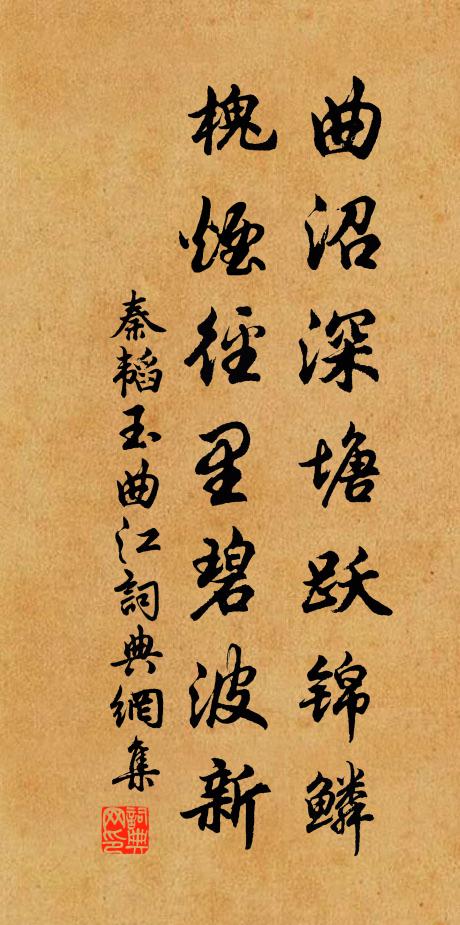 曲沼深塘跃锦鳞
槐烟径里碧波新
秦韬玉曲江詞典網集
詞典网印